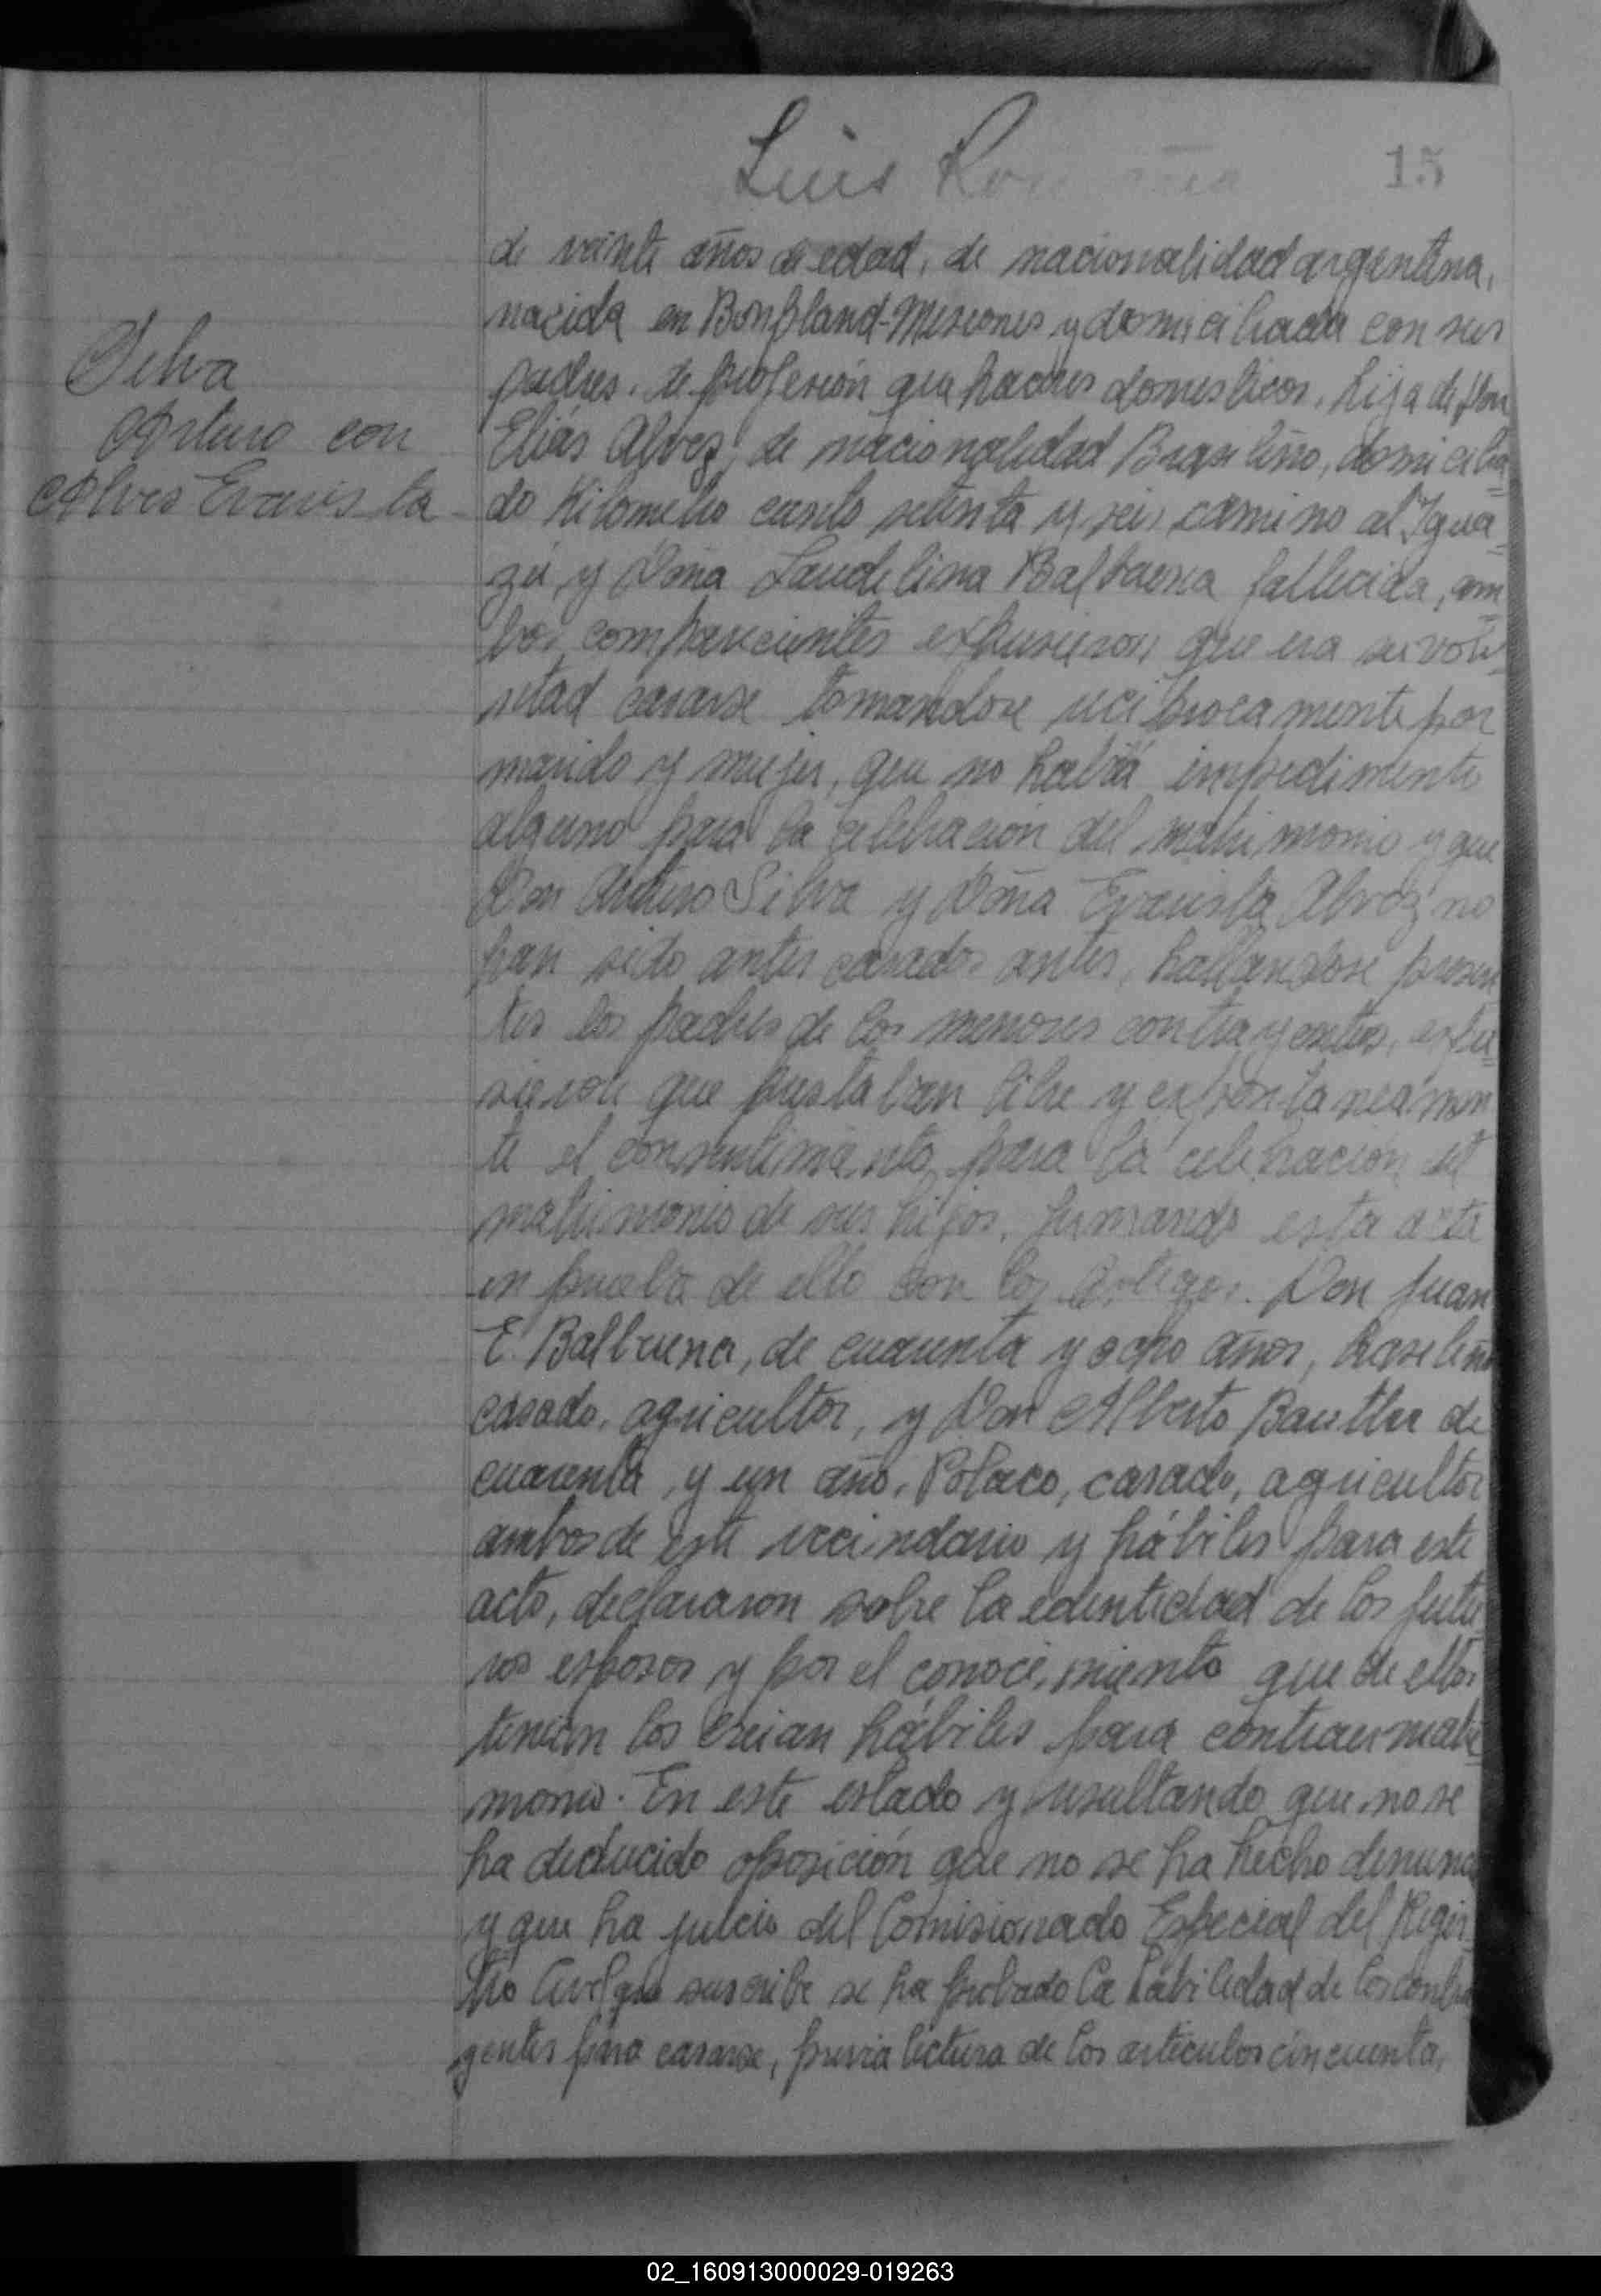 Luis
15
Silva
Arturo con
Alves Evarista
de veinte años de edad, de nacionalidad argentina,
nacida en Bonpland-Misiones y domiciliada con sus
padres, de profesión que haceres domesticos, hija de Don
Eliás Alvez, de nacionalidad Brasileño, domicilia
do Kilometro ciento setenta y seis camino al Igua-
zú, y Doña Laudelina Balbuena fallecida, am
bos comparecientes expusieron que era su volu-
ntad casarse tomandose reciprocamente por
marido y mujer, que no habiá impedimento
alguno para la celebracion del matrimonio y que
Don Arturo Silva y Doña Evarista Alvez no
han sido antes casados antes, hallandose presen
tes los padres de los menores contrayentes, expu-
sieron que prestaban libre y expontaneamen
te el consentimiento para la celebración del
matrimonio de sus hijos, firmando esta acta
en prueba de ello con los testigos. Don Juan
E. Balbuena, de cuarenta y ocho años, brasileño
casado, agricultor, y Don Alberto Bauthe de
cuarenta y un año, Polaco, casado, agricultor
ambos de este vecindario y hábiles para este
acto, declararon sobre la edentidad de los futu
ros esposos y por el conocimiento que de ellos
tenian los creian hábiles para contraer matri-
monio. En este estado y resultando que no se
ha deducido oposición que no se ha hecho denuncia
y que ha juicio del Comisionado Especial del Regis-
tro Civil que suscribe se ha probado la habilidad de los contra
yentes para casarse, previa lectura de los articulos cincuenta,
02_160913000029-019263